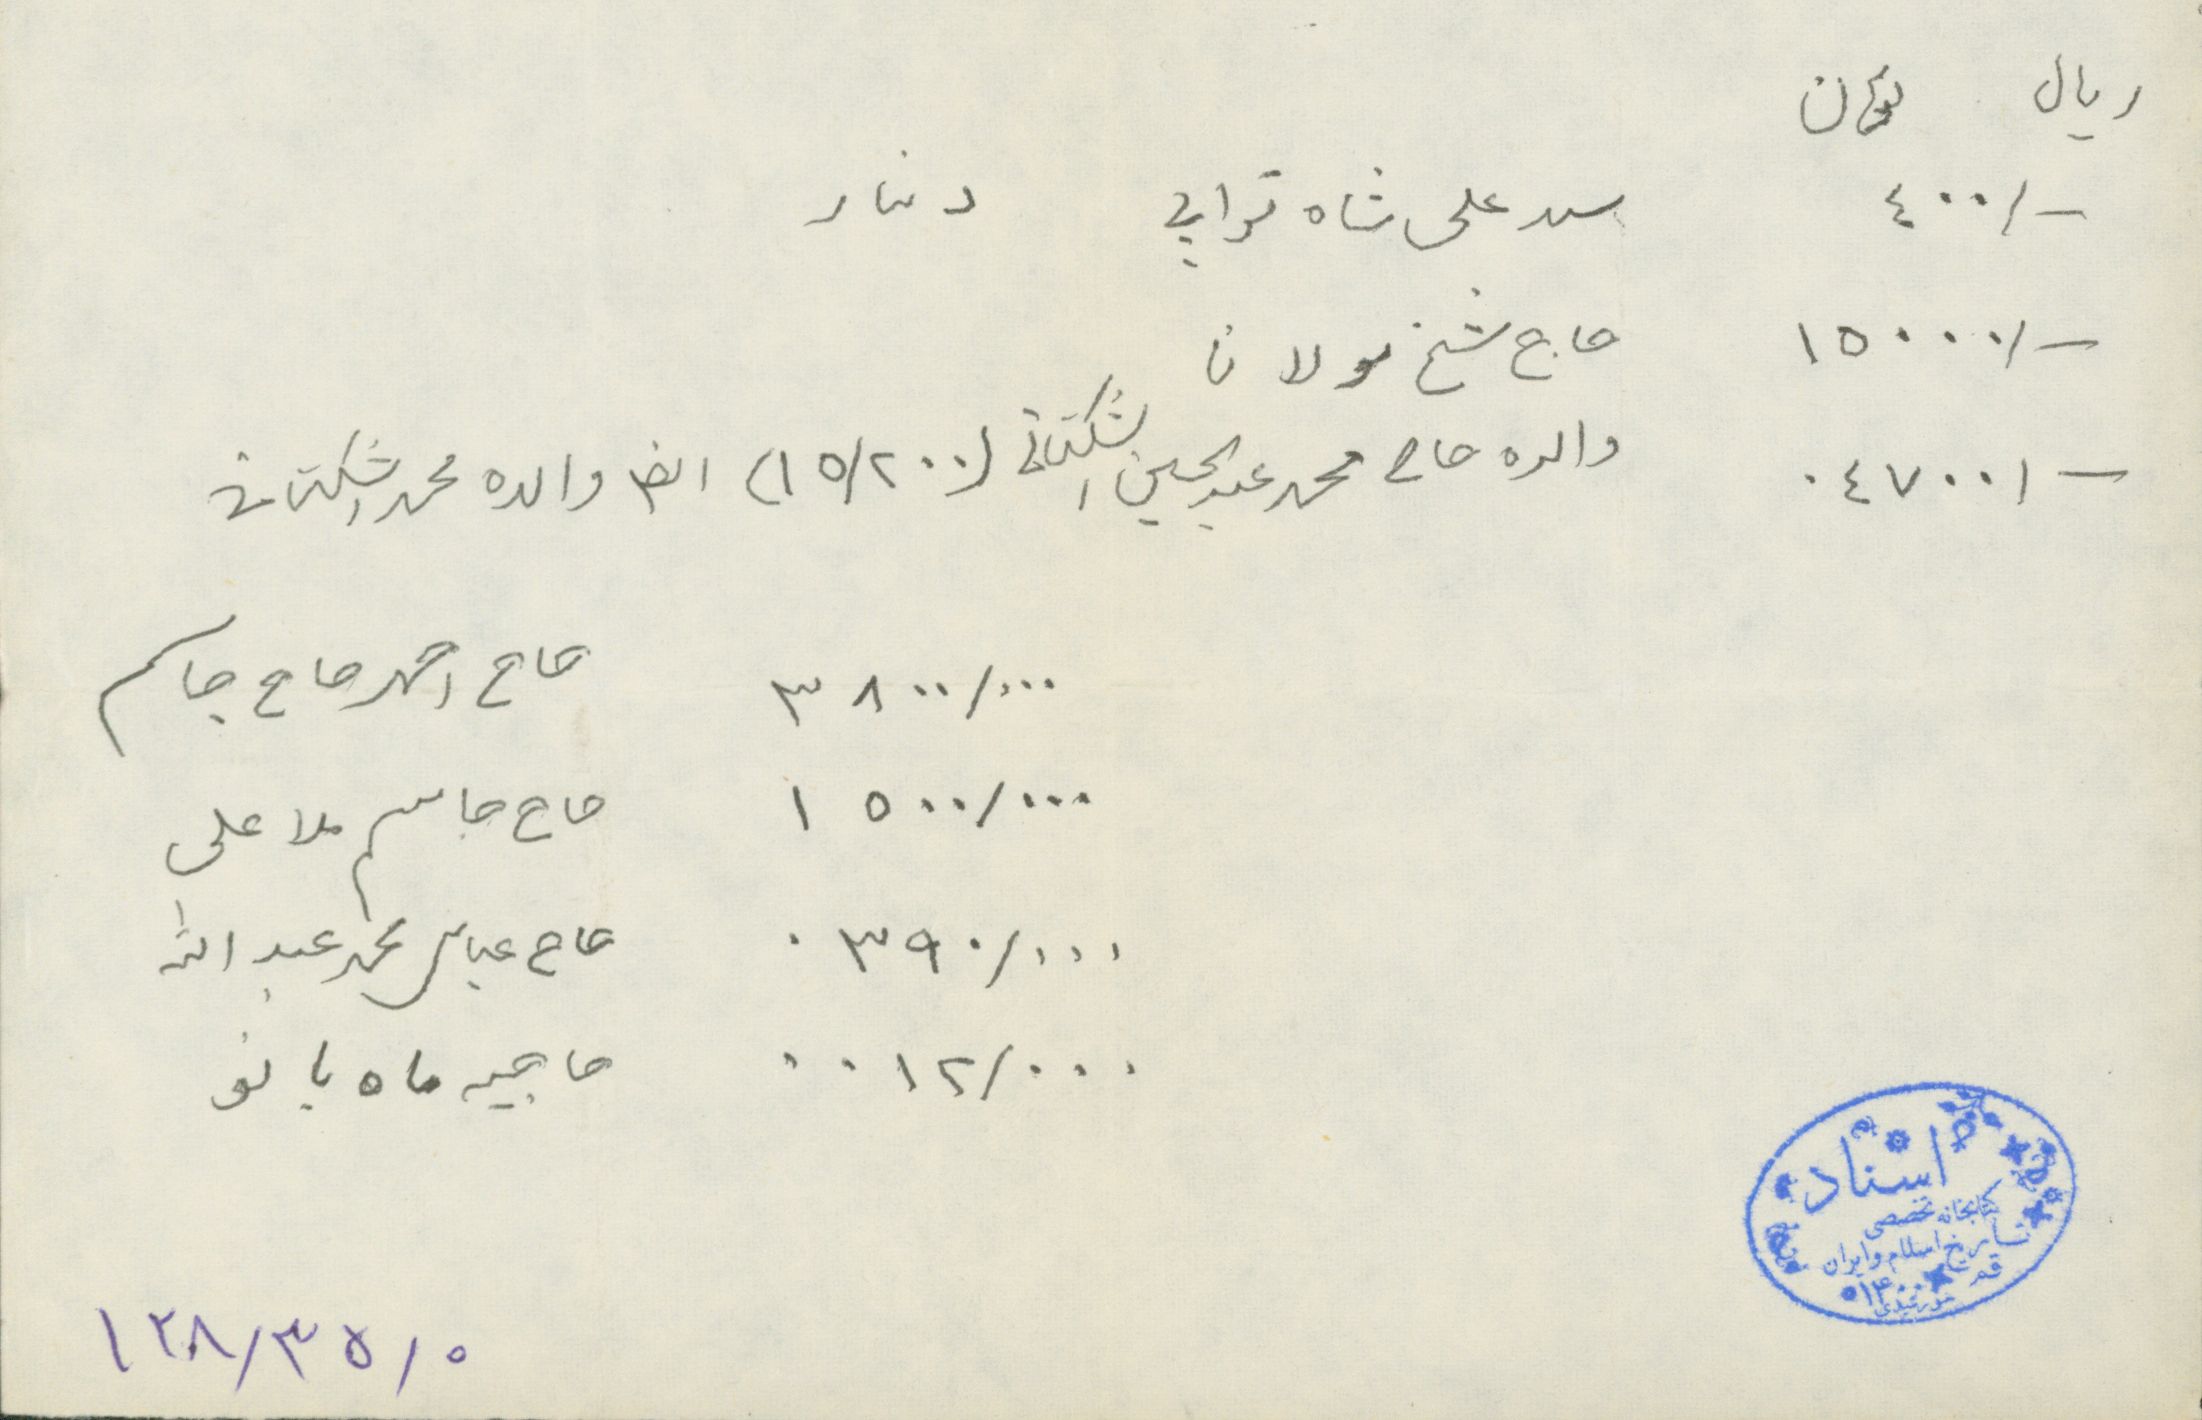 ریال تومان
۴۰۰/- سید علی شاه ترابی دینار
۱۵۰۰۰/- حاج شیخ مولان
۰۴۷۰۰/- والده حاج محمد عبدالحسین اشکنانی (۱۵/۲۰۰) ایضا والده محمد اشکنانی
۳۸۰۰/۰۰۰ حاج احمد حاج جاسم
۱۵۰۰/۰۰۰ حاج جاسم ملا علی
۰۳۹۰/۰۰۰ حاج عباس محمد عبدالله
۰۰۱۲/۰۰۰ حاجیه ماه بانو
اسناد
کتابخانه تخصصی
تاریخ اسلام و ایران
قم
۱۲۸/۳۵/۰